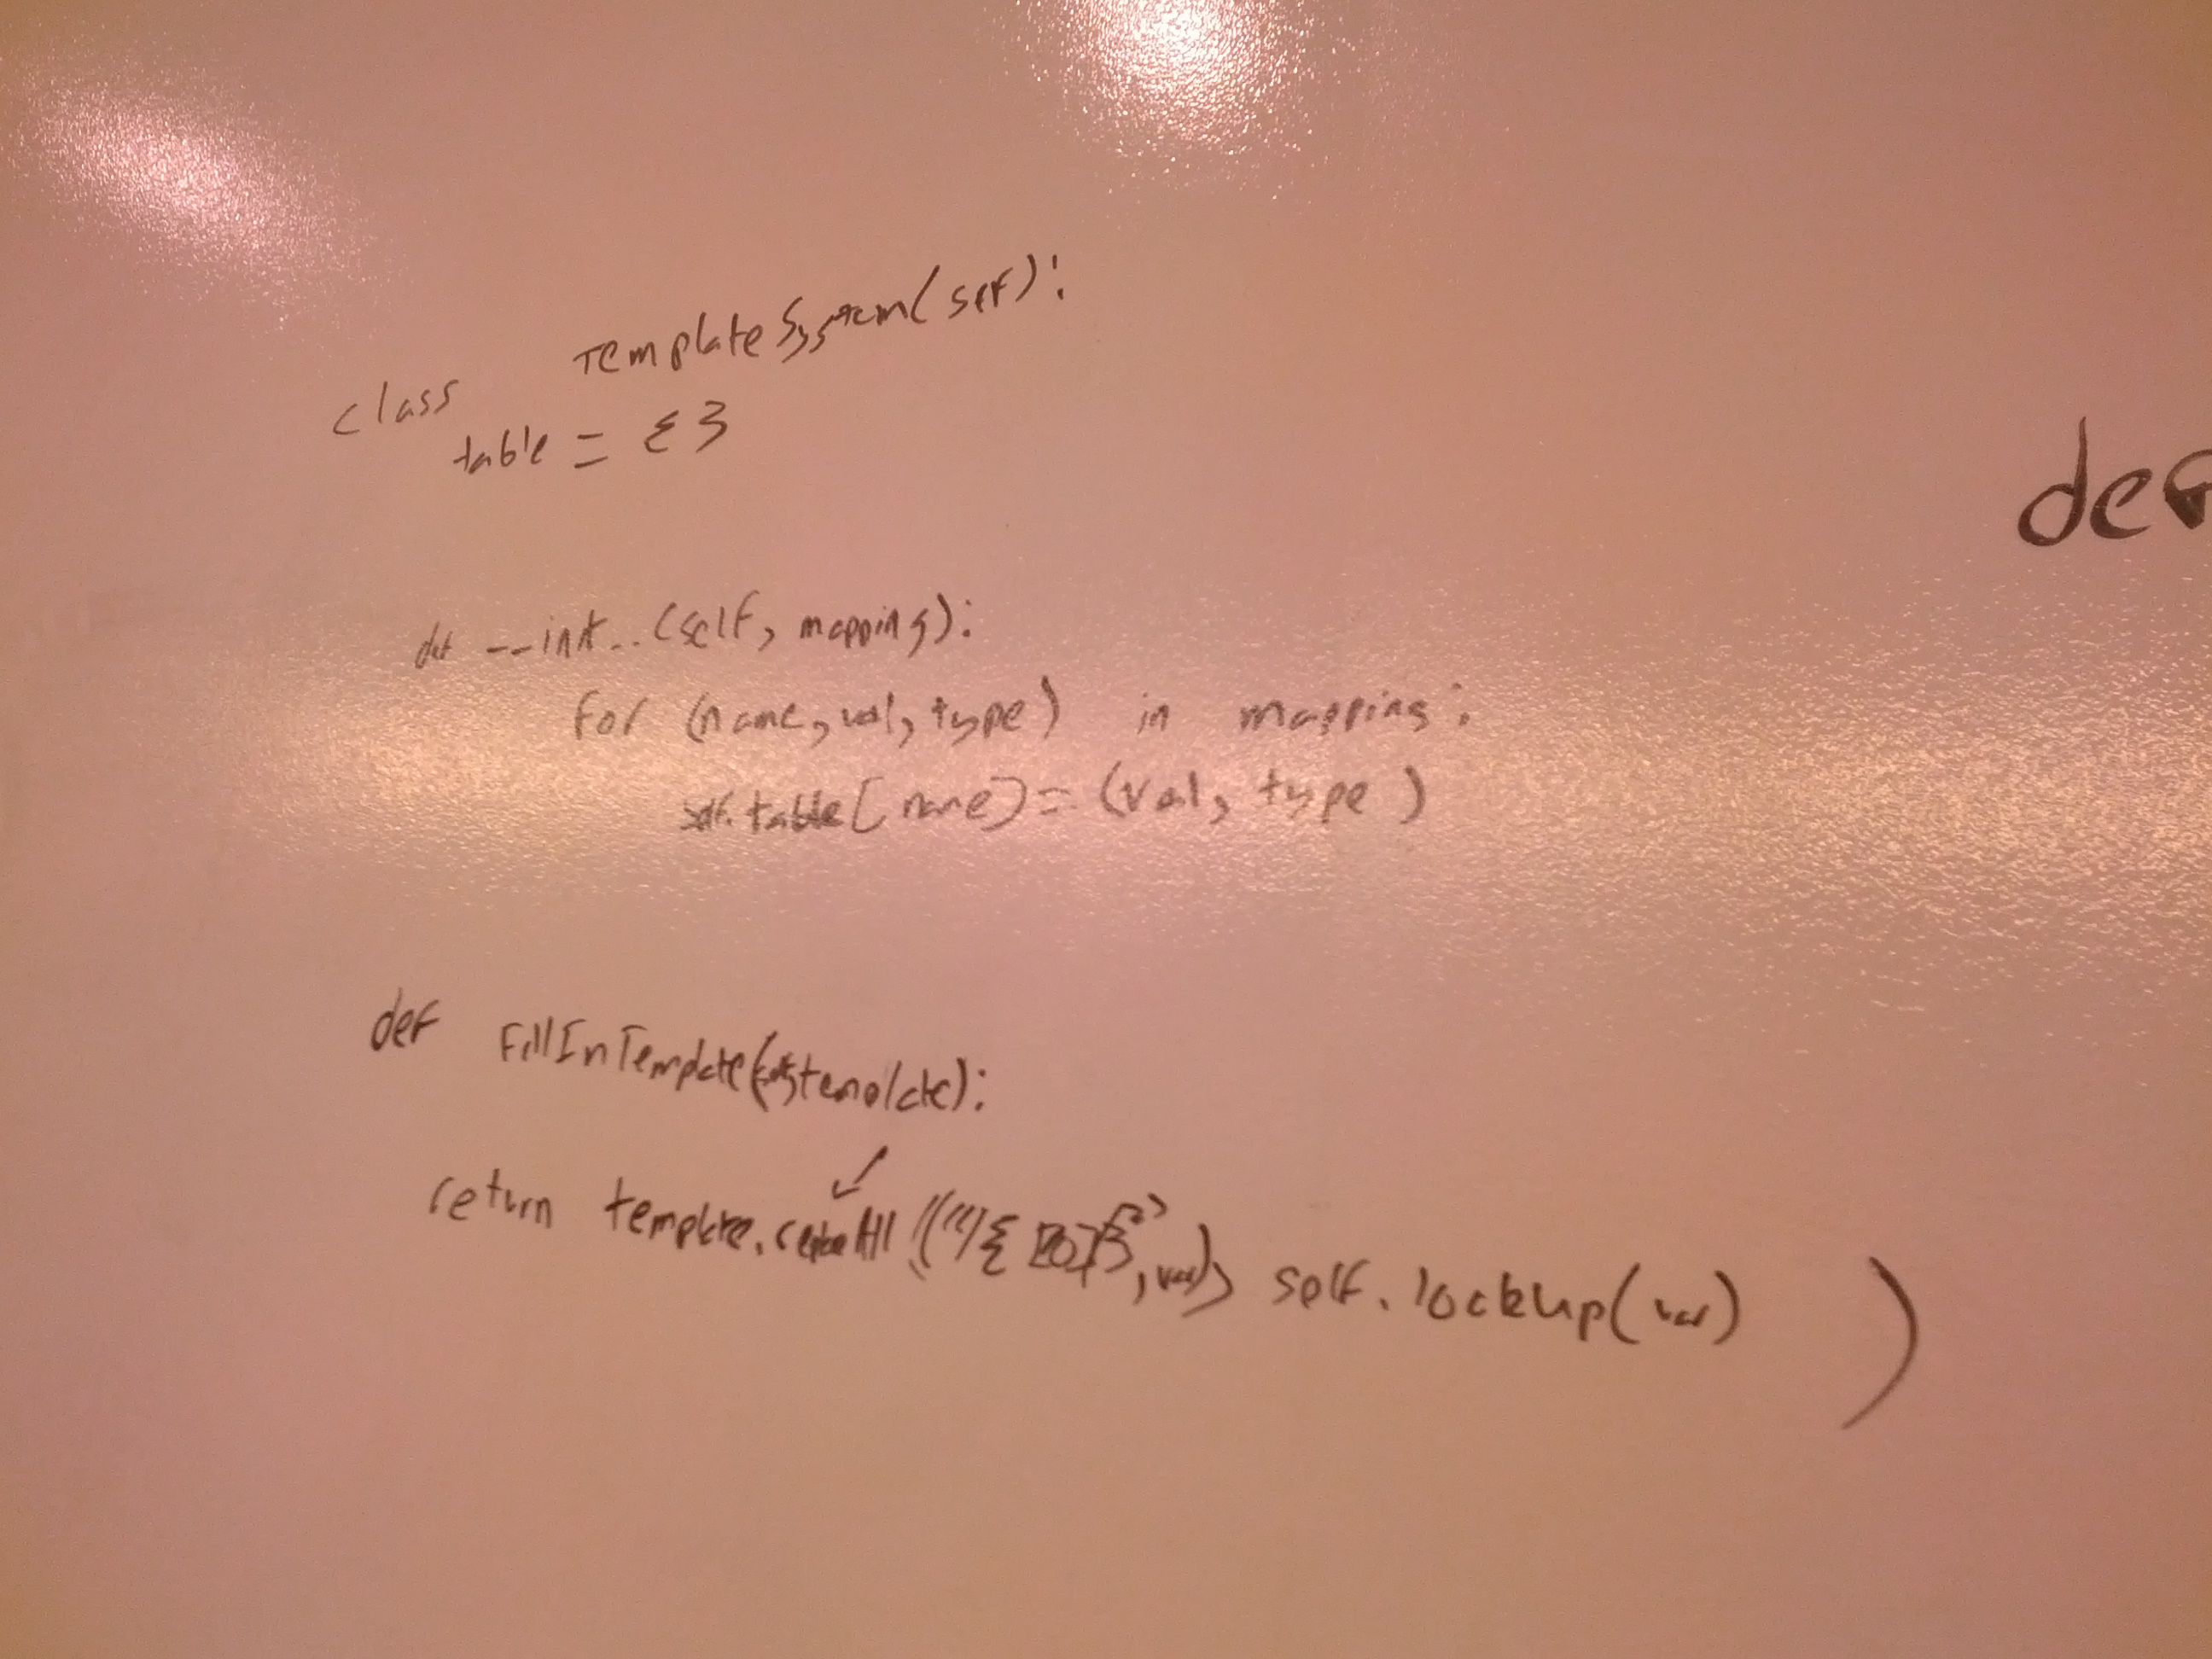 class TemplateSystem(self):
table = {}
def
def __init__(self, mapping):
for (name, val, type) in mapping:
self.table[name] = (val, type)
def FillInTemplate(self, template):
return template.replaceAll , var), self.lookup(var) )